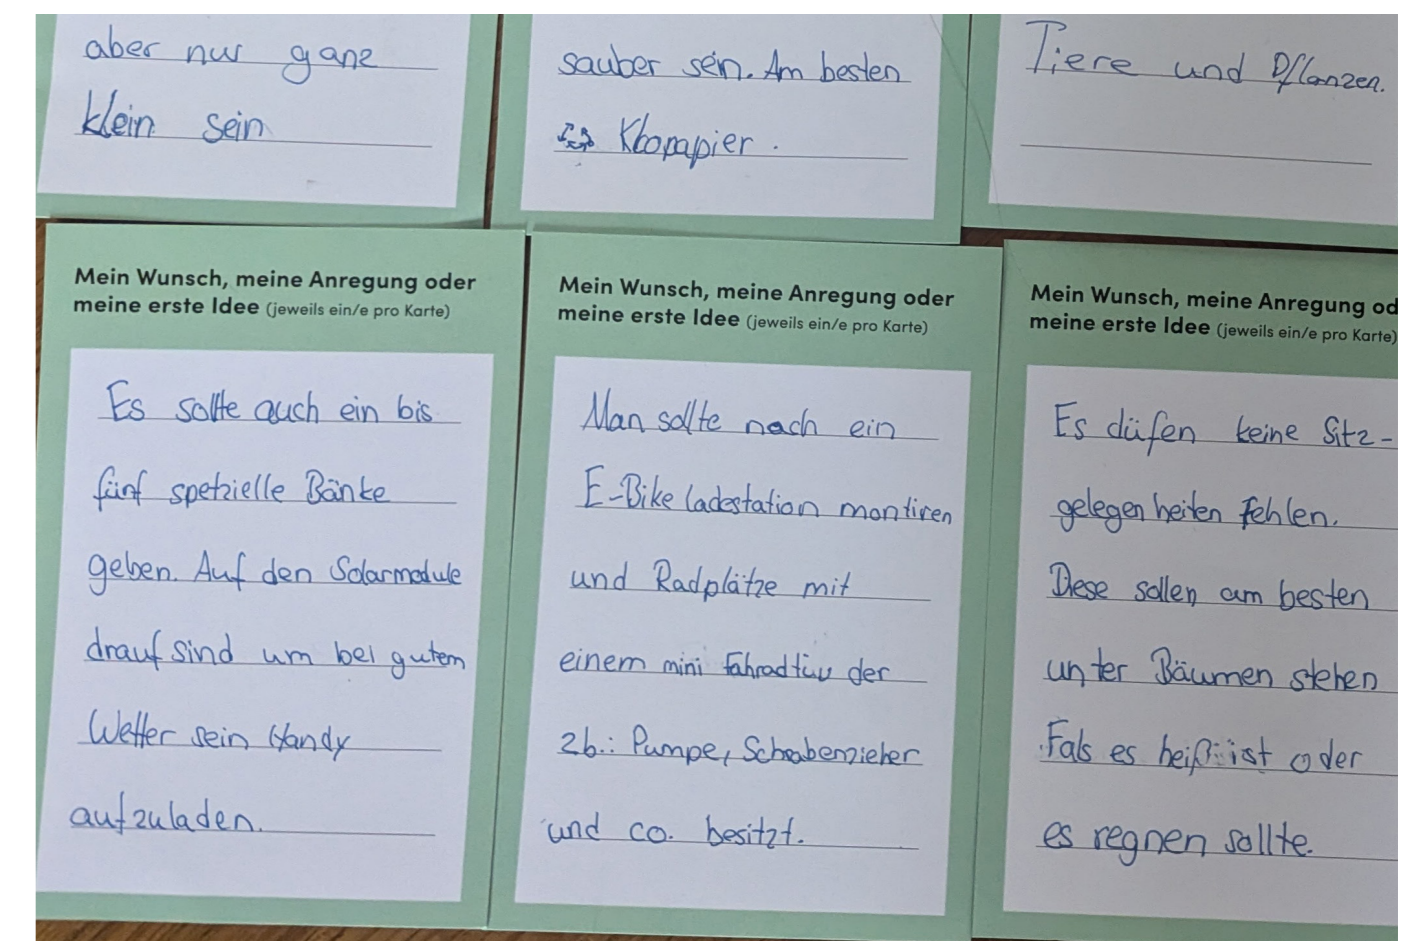 aber nur ganz
klein sein
sauber sein. Am besten
Klopapier.
Tiere und Pflanzen.
Mein Wunsch, meine Anregung oder
meine erste Idee (jeweils ein/e pro Karte)
Es sollte auch ein bis
fünf spetzielle Bänke
geben. Auf den Solarmodule
drauf sind um bei gutem
Wetter sein Handy
aufzuladen.
Mein Wunsch, meine Anregung oder
meine erste Idee (jeweils ein/e pro Karte)
Man sollte noch ein
E-Bike ladestation montiren
und Radplätze mit
einem mini der
zb.: Pumpe, Schrabenzieher
und co. besitzt.
Mein Wunsch, meine Anregung od
meine erste Idee (jeweils ein/e pro Karte)
Es düfen keine Sitz-
gelegenheiten fehlen.
Diese sollen am besten
unter Bäumen stehen
Fals es heiß ist oder
es regnen sollte.